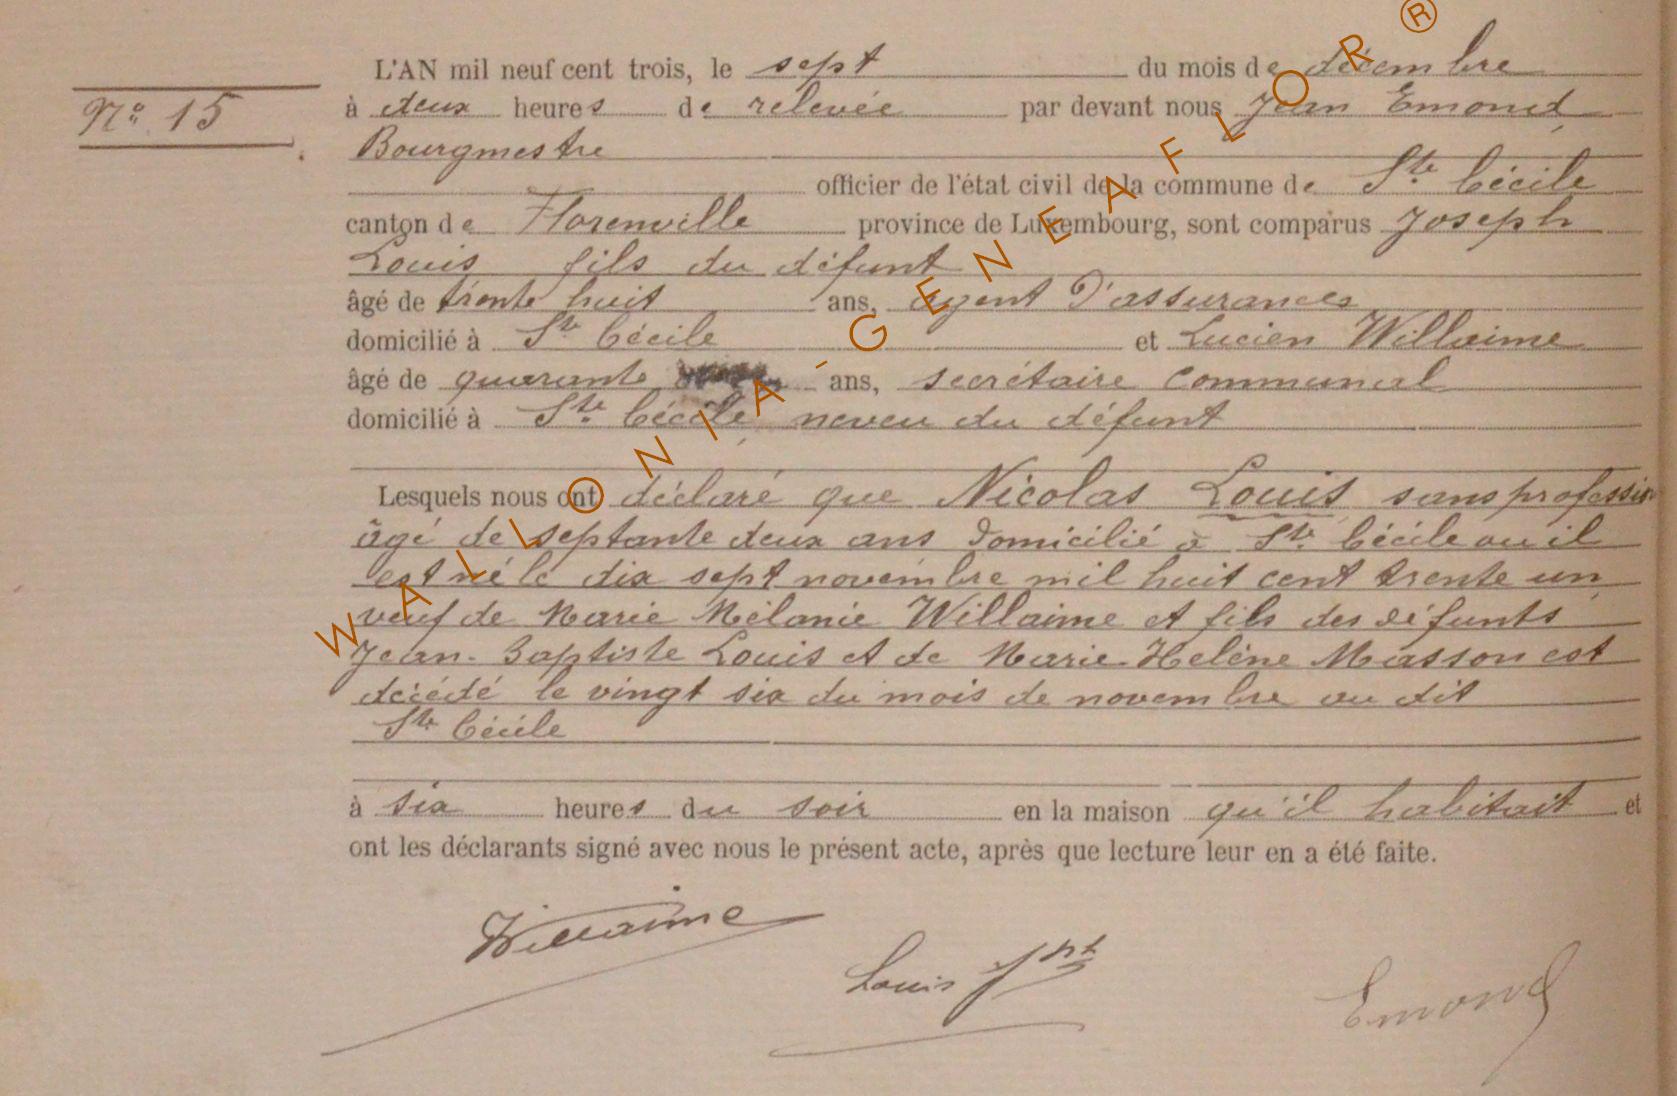 L'AN mil neuf cent trois, le sept du mois de décembre
Nº 15
à deux heures de relevée par devant nous Jean Emond
Bourgmestre
officier de l'état civil de la commune de Ste Cécile
canton de Florenville province de Luxembourg, sont comparus Joseph
Louis fils du défunt
âgé de trente huit ans, agent d'assurances
domicilié à Ste Cécile et Lucien Willaime
âgé de quarante ans, secrétaire communal
domicilié à Ste Cécile, neveu du défunt
Lesquels nous ont déclaré que Nicolas Louis sans profession
âgé de septante deux ans domicilié à Ste Cécile ou il
est né le dix sept novembre mil huit cent trente un,
veuf de Marie Mélanie Willaime et fils des défunts
Jean-Baptiste Louis et de Marie-Helène Masson est
décédé le vingt six du mois de novembre au dit
Ste Cécile
à six heures du soir en la maison qu'il habitait et
ont les déclarants signé avec nous le présent acte, après que lecture leur en a été faite.
Willaime
Louis Jph
Emond
WALLONIA-GENEAFLOR®